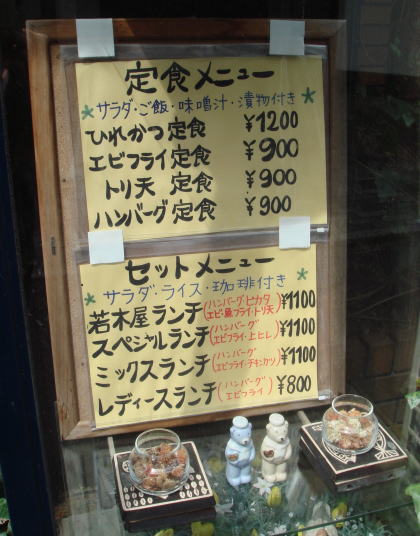 定食メニュー
*サラダ・ご飯・味噌汁・漬物付き*
ひれかつ定食 ¥1200
エビフライ定食 ¥900
トリ天 定食 ¥900
ハンバーグ定食 ¥900
セットメニュー
*サラダ・ライス・珈琲付き*
若木屋ランチ(ハンバーグ・ピカタ エビ・魚フライ・トリ天)¥1100
スペシャルランチ(ハンバーグ エビフライ・上ヒレ)¥1100
ミックスランチ(ハンバーグ エビフライ・チキンカツ)¥1100
レディースランチ(ハンバーグ エビフライ)¥800